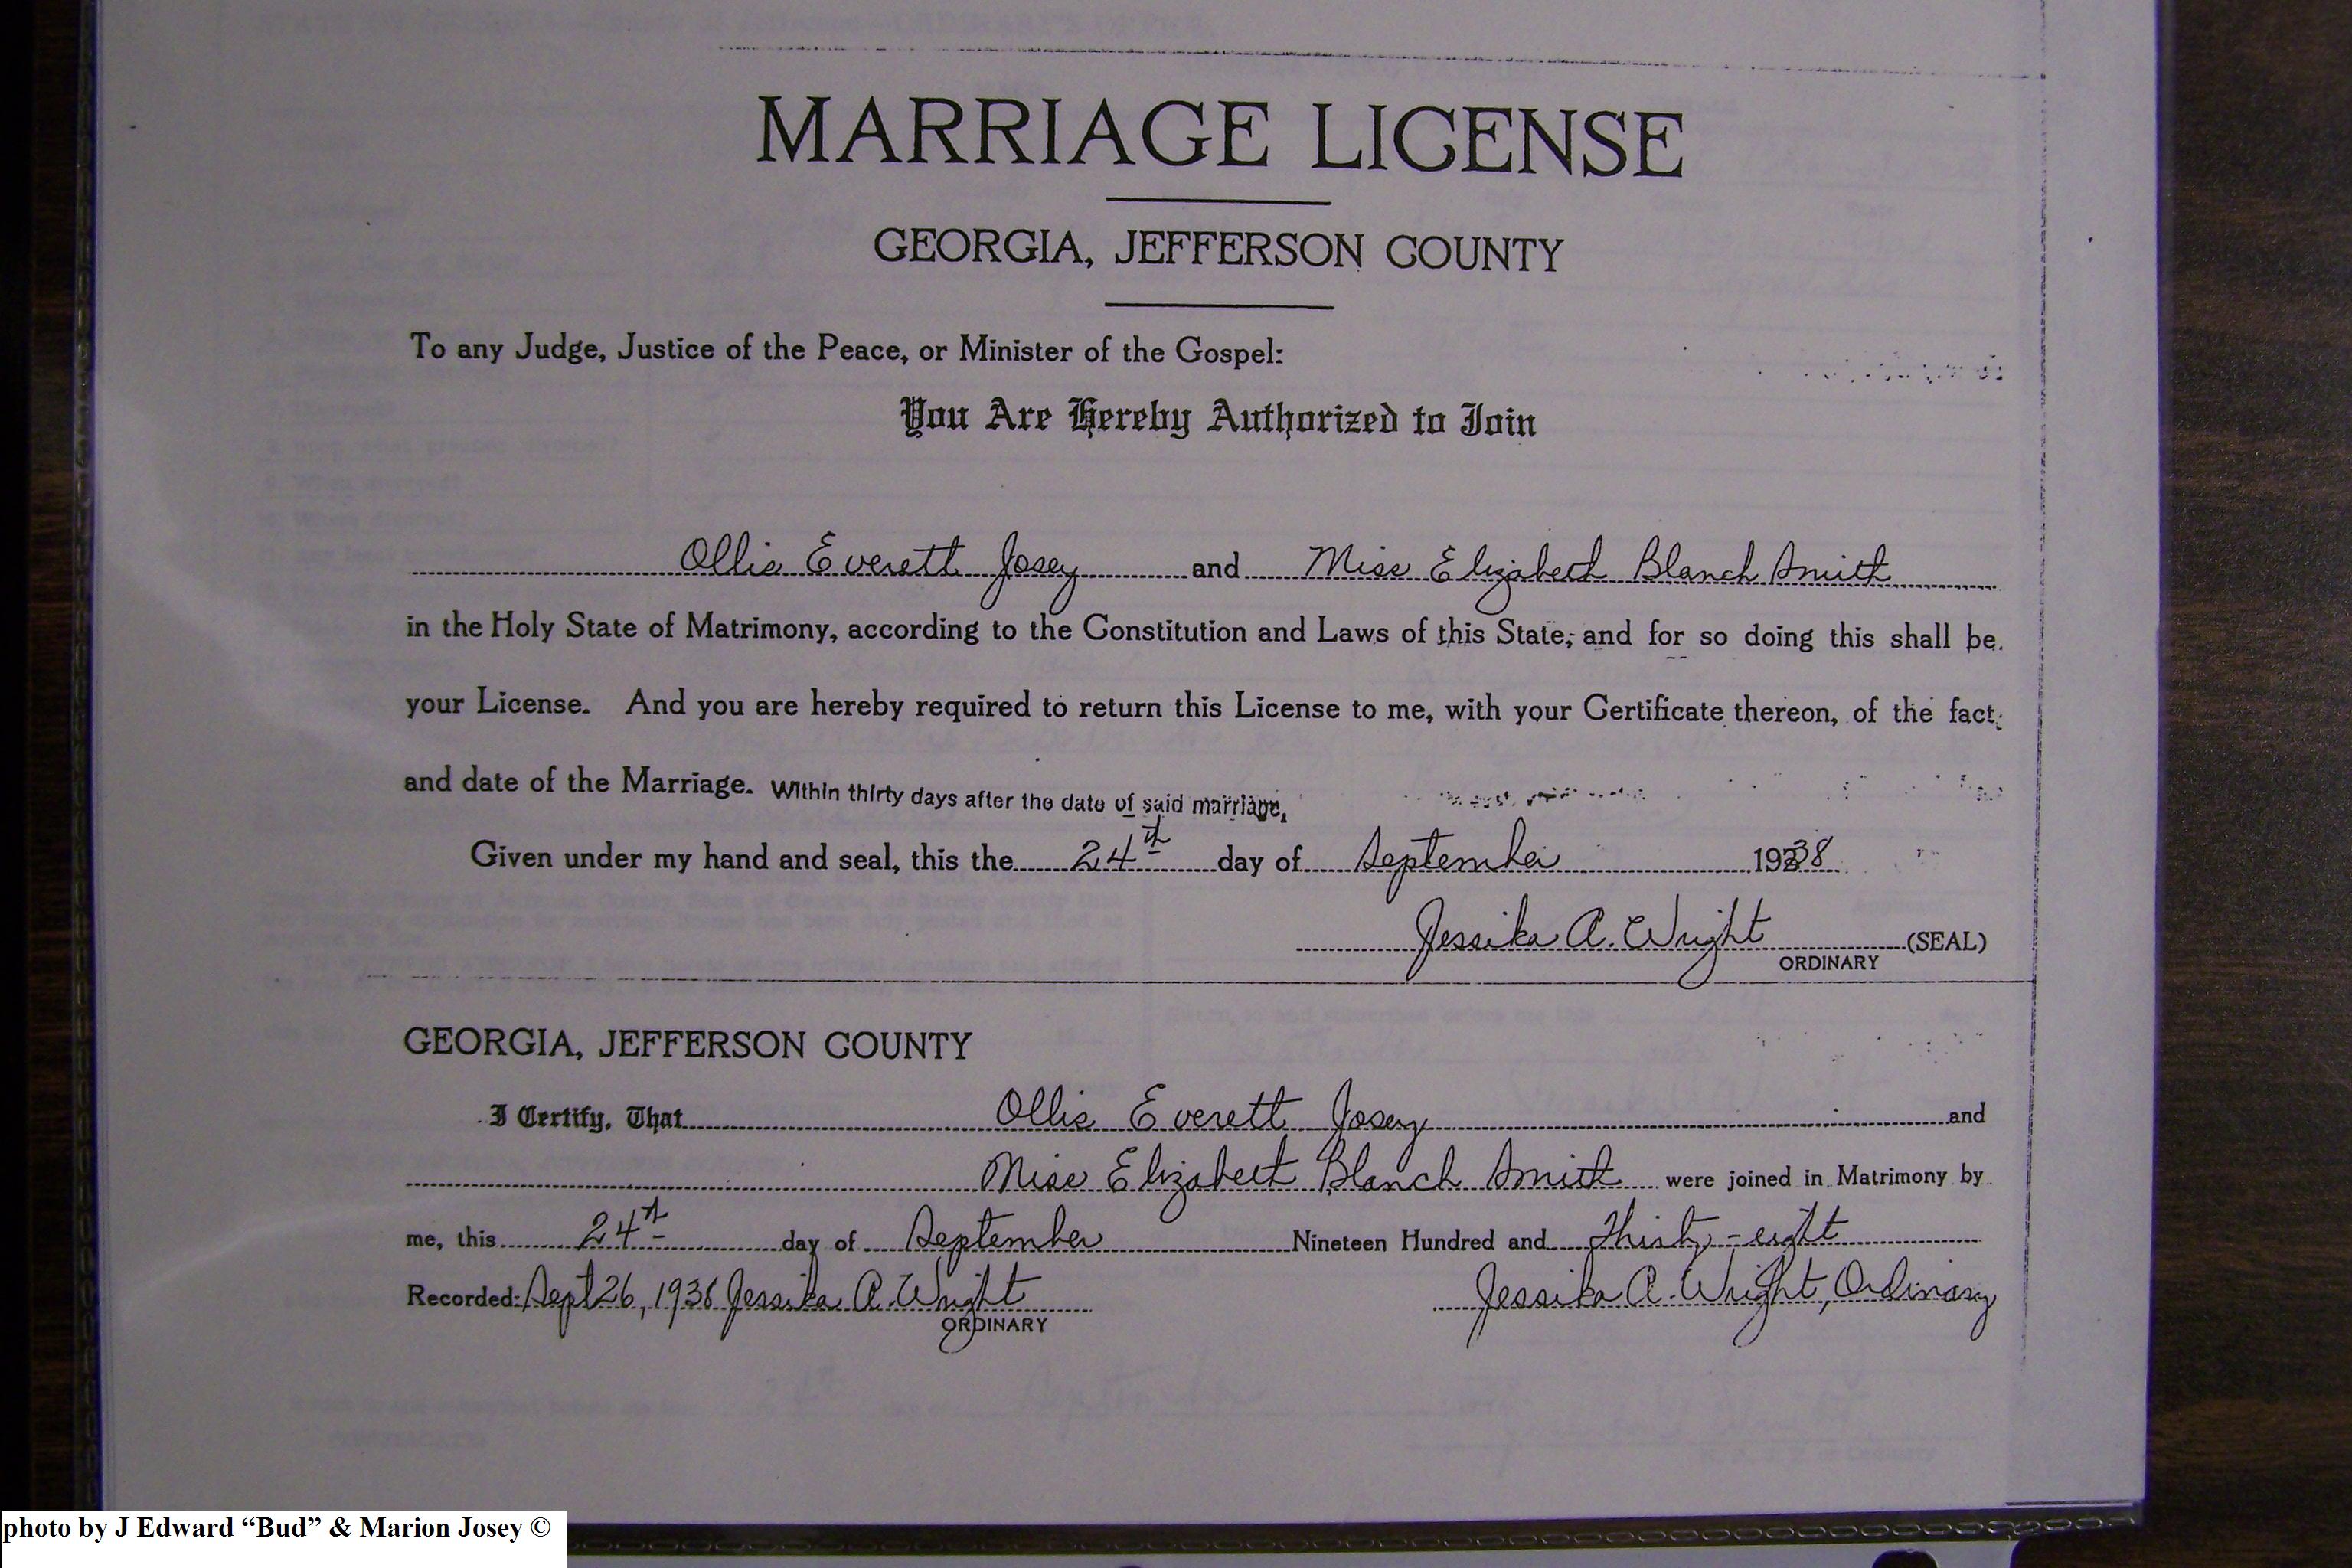 MARRIAGE LICENSE
GEORGIA, JEFFERSON COUNTY
To any Judge, Justice of the Peace, or Minister of the Gospel:
You Are Hereby Authorized to Join
Ollie Everett Josey and Miss Elizabeth Blanch Smith
in the Holy State of Matrimony, according to the Constitution and Laws of this State, and for so doing this shall be
your License. And you are hereby required to return this License to me, with your Certificate thereon, of the fact
and date of the Marriage. Within thirty days after the date of said marriage.
Given under my hand and seal, this the 24th day of September 1938
Jessika A. Wright (SEAL)
ORDINARY
GEORGIA, JEFFERSON COUNTY
I Certify, That Ollie Everett Josey and
Miss Elizabeth Blanch Smith were joined in Matrimony by
me, this 24th day of September Nineteen Hundred and Thirty-eight
Recorded: Sept 26, 1938 Jessika A. Wright Jessika A. Wright, Ordinary
ORDINARY
photo by J Edward “Bud” & Marion Josey ©